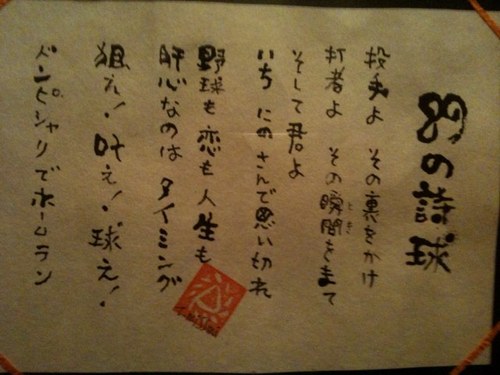 幻の詩球
投手よ その裏をかけ
打者よ その瞬間をまて
とき
そして君よ
いち にの さんで思い切れ
野球も恋も人生も
肝心なのは タイミング
狙え!叶え!球え!
ドンピシャリでホームラン